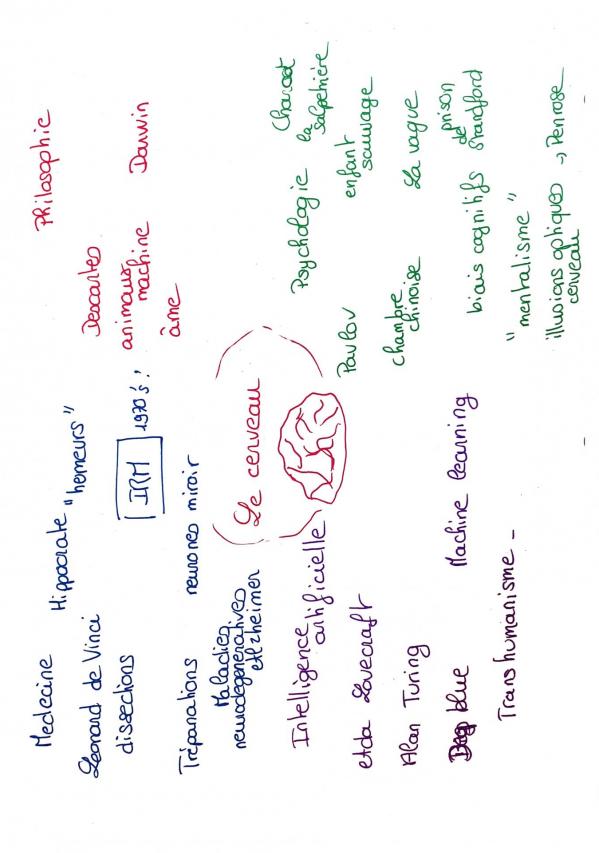 Medecine
Hippocrate "hemeurs"
Leonard de Vinci
dissections
IRM 1970's!
Trépanations
neurones miroir
Maladies
neurodegeneratives
Alzheimer
Philosophie
Descartes
animaux
machine
Darwin
âme
Le cerveau
Intelligence
artificielle
Lovecraft
Alan Turing
Deep blue
Machine learning
Transhumanisme -
Psychologie
Charcot
la
salpetrière
Pavlov
enfant
sauvage
chambre
chinoise
La vague
biais cognitifs
prison
de
Standford
"mentalisme"
illusions optiques → Penrose
cerveau